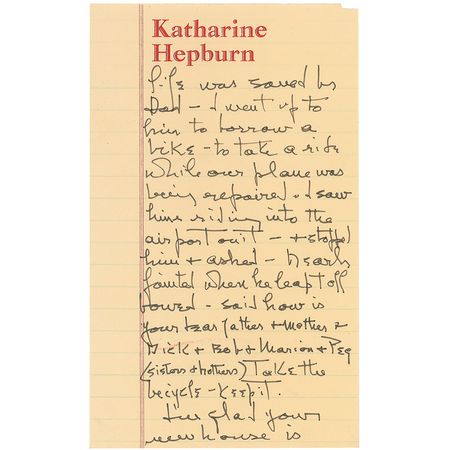 Katharine
Hepburn
life was saved by
Dad - I went up to
him to borrow a
bike - to take a ride
while our plane was
being repaired. I saw
him riding into the
airport on it - + stopped
him + asked - Nearly
fainted when he leapt off
bowed - said how is
your dear father + mother +
Dick + Bob + Marion + Peg
(sisters + brothers) Take the
bicycle - keep it.
I'm glad your
new house is